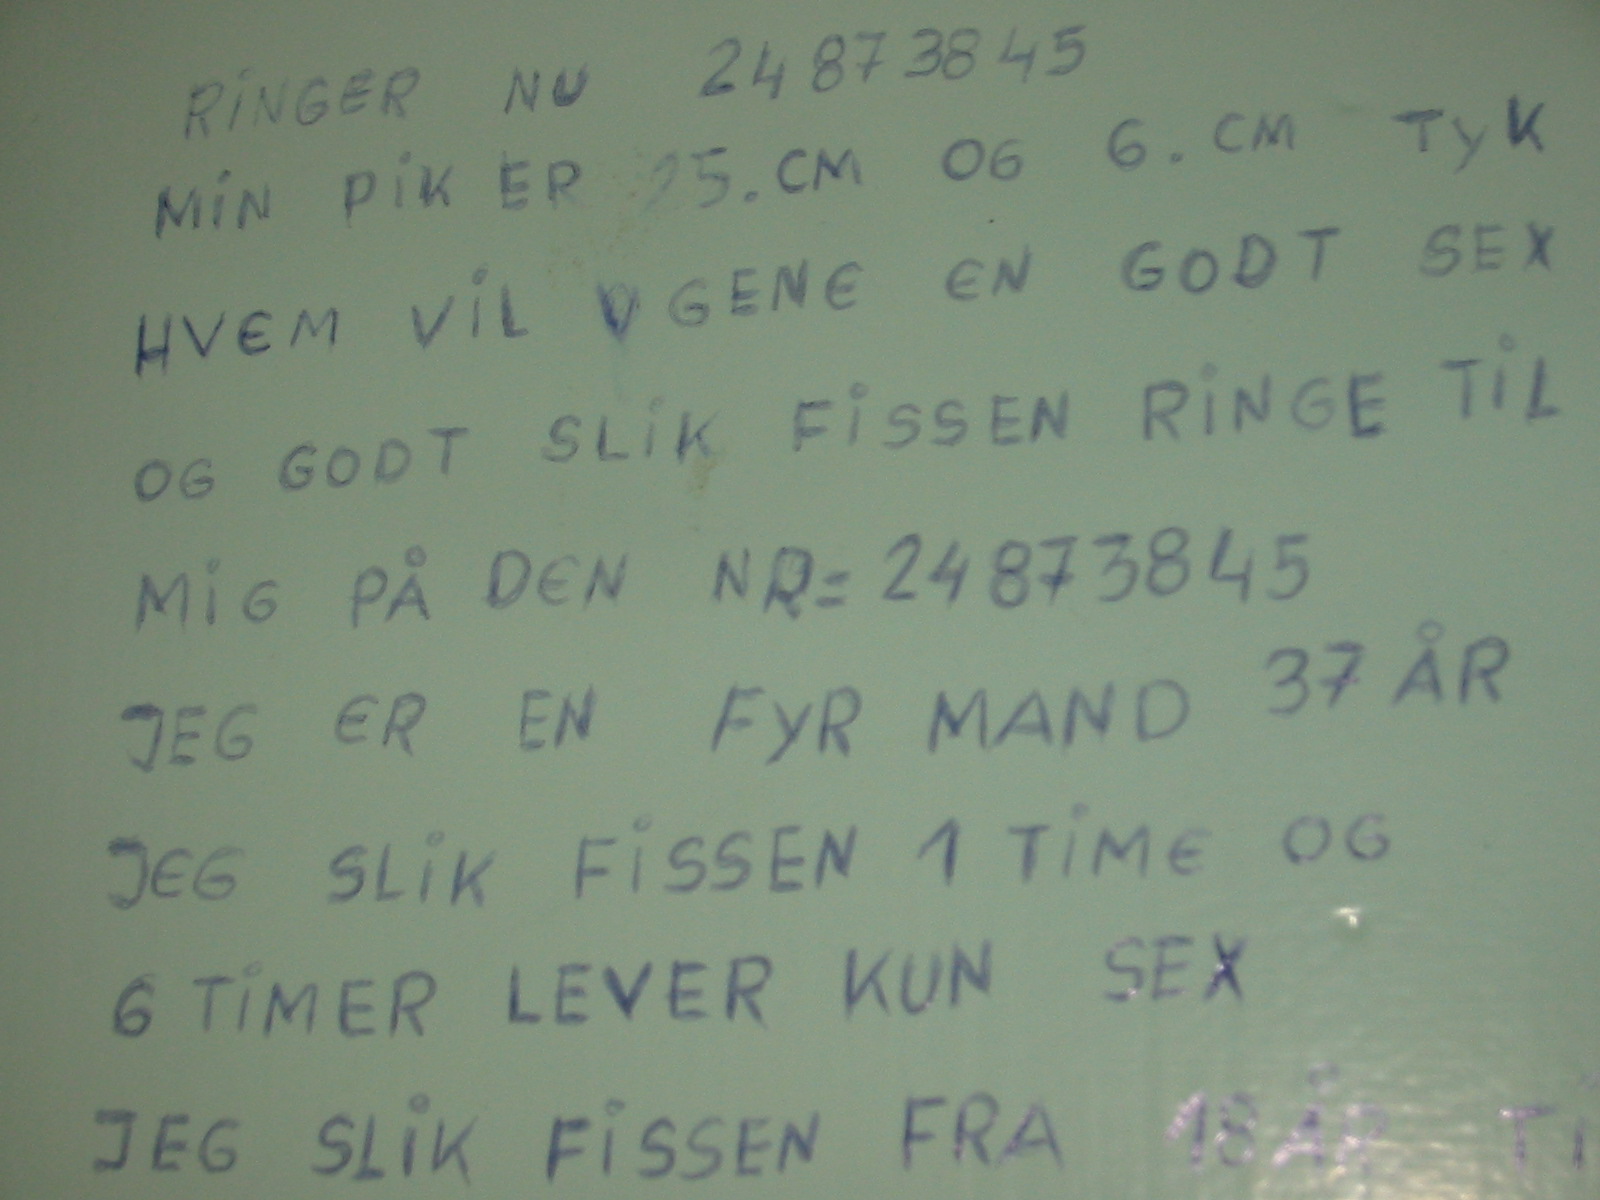 RINGER NU 24873845
MIN PIK ER 25.CM OG 6.CM TYK
HVEM VIL GENE EN GODT SEX
OG GODT SLIK FISSEN RINGE TIL
MIG PÅ DEN NR= 24873845
JEG ER EN FYR MAND 37 ÅR
JEG SLIK FISSEN 1 TIME OG
6 TIMER LEVER KUN SEX
JEG SLIK FISSEN FRA 18 ÅR TI